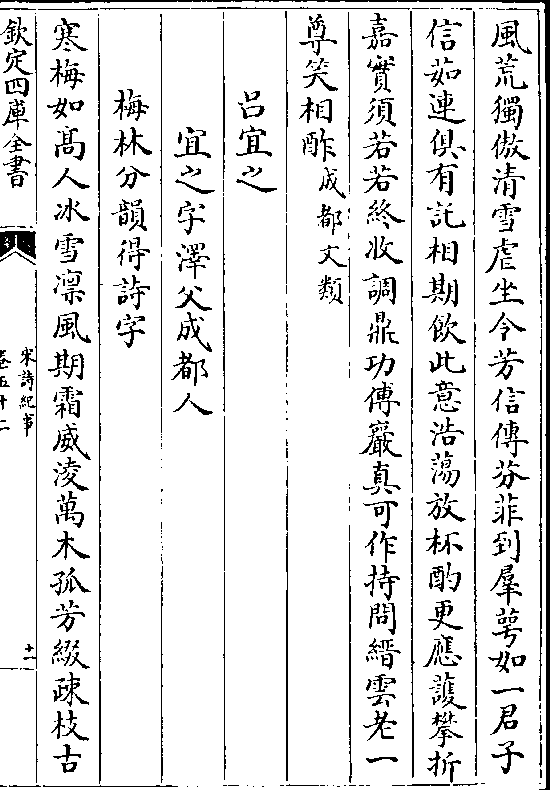 風荒獨傲清雪虐坐令芳信傳芬菲到羣萼如一君子
信茹連俱有託相期飲此意浩蕩放杯酌更應護攀折
嘉實須若若終收調鼎功傅巖真可作持問縉雲老一
尊笑相酢成都文類
呂宜之
宜之字澤父成都人
梅林分韻得詩字
寒梅如髙人冰雪凛風期霜威淩萬木孤芳綴疎枝古
欽定四庫全書
宋詩紀事
卷五十二
十一